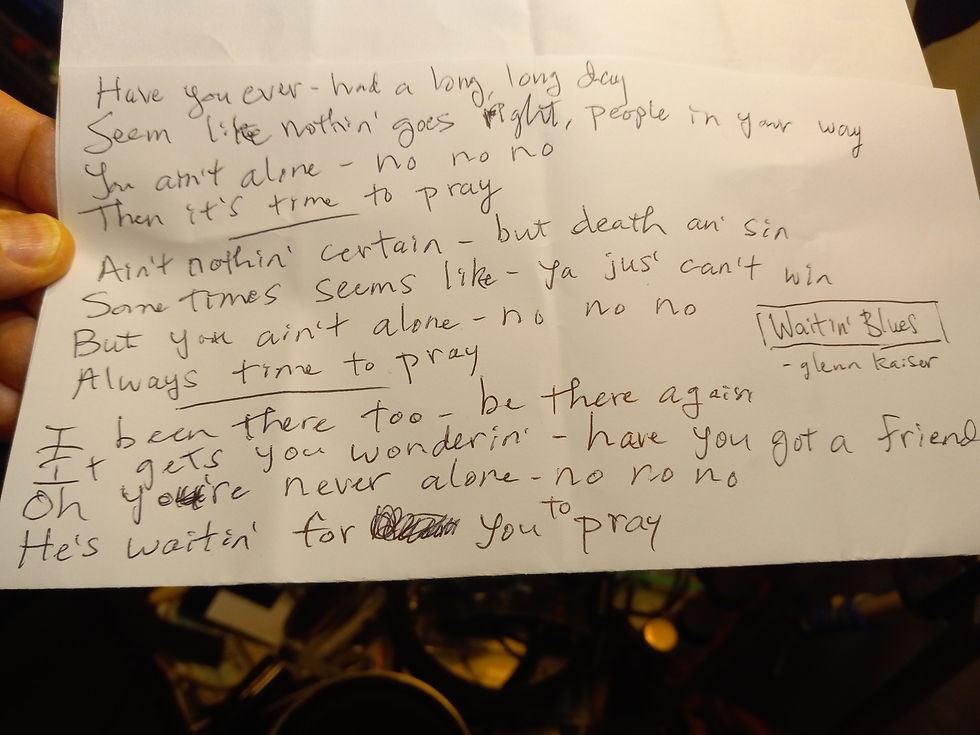 Have you ever - had a long, long day
Seem like nothin' goes right, people in your way
You ain't alone - no no no
Then it's time to pray
Ain't nothin' certain - but death an' sin
Sometimes seems like - ya jus' can't win
But you ain't alone - no no no
Always time to pray
Waitin' Blues
- glenn kaiser
I been there too - be there again
It gets you wonderin' - have you got a friend
Oh you're never alone - no no no
He's waitin' for you to pray